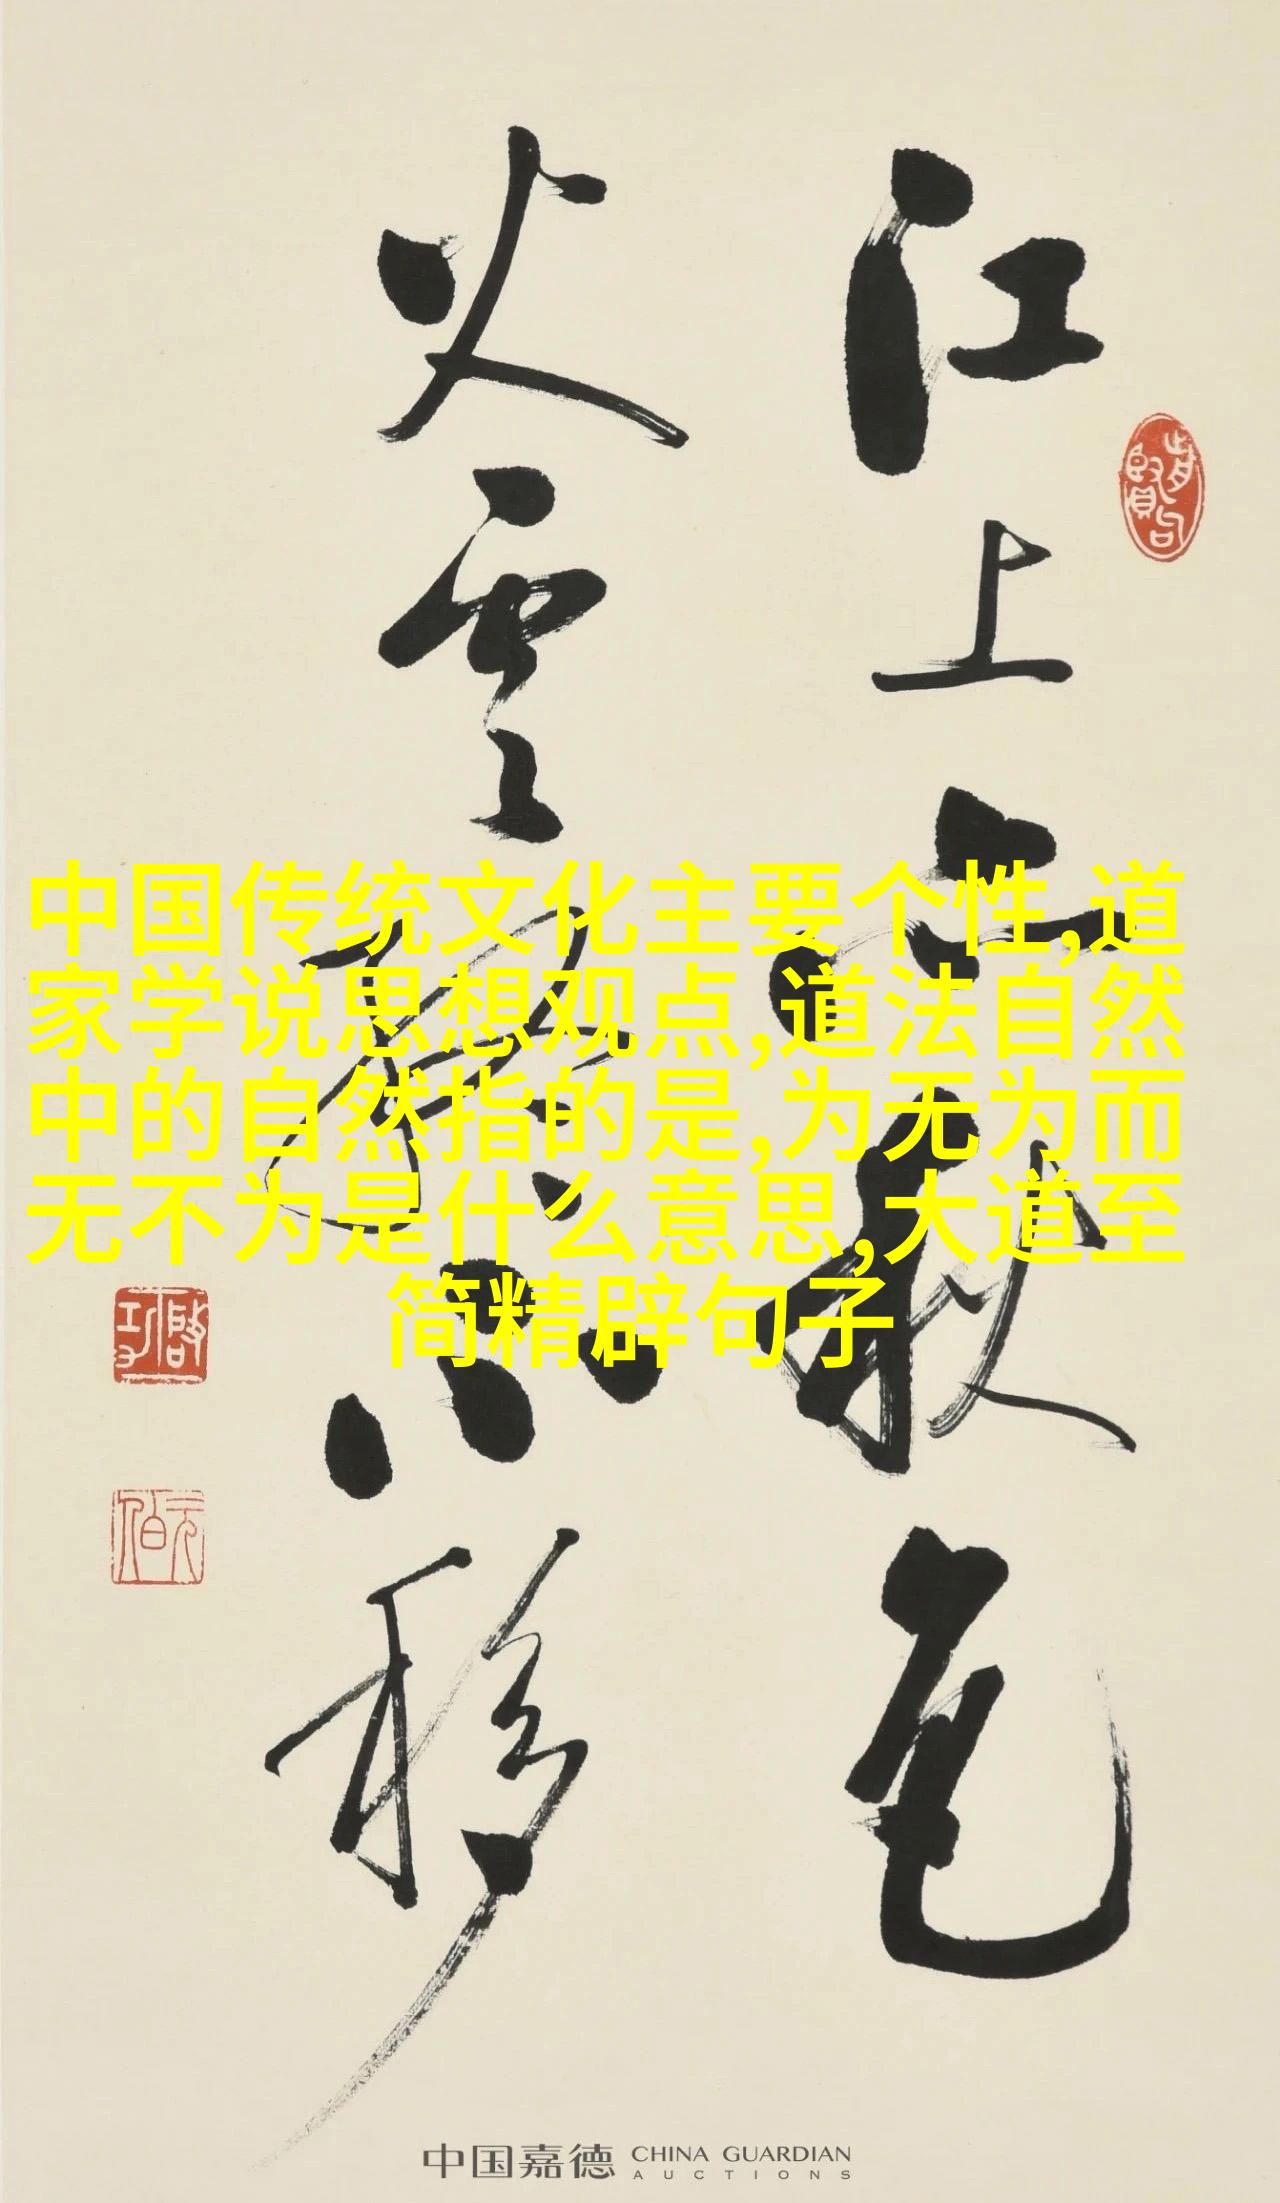 江上亦秋色
火雲終不移
啓功
元白
中国传统文化主要个性,道
家学说思想观点,道法自然
中的自然指的是,为无为而
无不为是什么意思,大道至
简精辟句子
中国嘉德 CHINA GUARDIAN
AUCTIONS